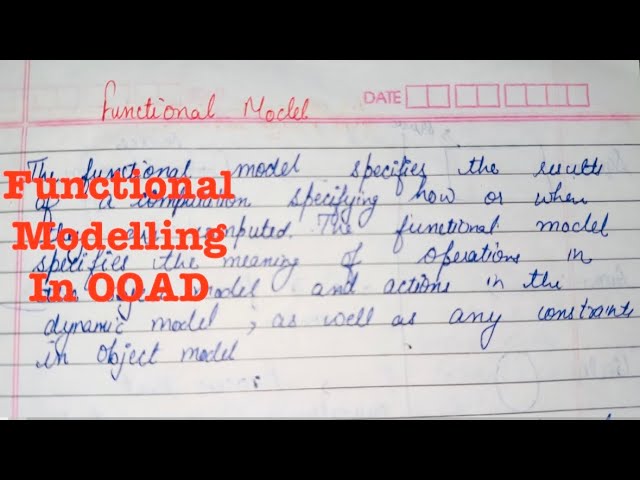 Functional Model
DATE
The functional model specifies the results
of a computation specifying how or when
computed. The functional model
specifies the meaning of operations in
model and actions in the
dynamic model, as well as any constraints
in object model
Functional
Modelling
In OOAD